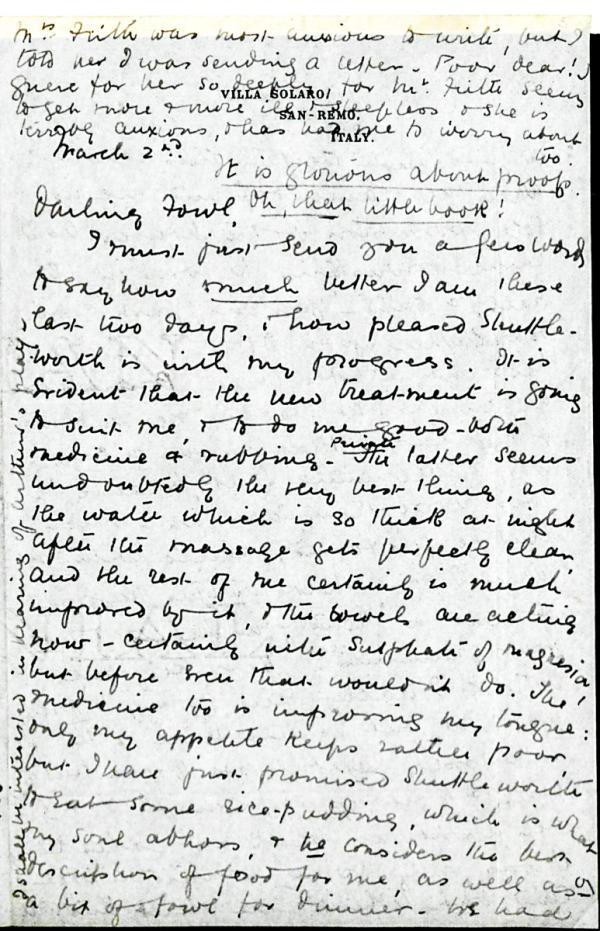 Mrs Firth was most anxious to write, but I
told her I was sending a letter - Poor dear! I
grieve for her so deeply, for Mr. Firth seems
to get more & more ill & sleepless & she is
terribly anxious, & has had me to worry about
too.
VILLA SOLARO,
SAN-REMO.
ITALY.
March 2nd.
It is glorious about proofs.
Oh, that little book!
Darling Fowl,
I must just send you a few words
to say how much better I am these
last two days, & how pleased Shuttle-
worth is with my progress. It is
evident that the new treatment is going
to suit me, & to do me good - both
medicine & rubbing - Private The latter seems
undoubtedly the very best thing, as
the water which is so thick at night
after the massage gets perfectly clear,
and the rest of me certainly is much
improved by it, & the bowels are acting
now - certainly with Sulphate of magnesia!
but before even that wouldn't do. The
medicine too is improving my tongue:
only my appetite keeps rather poor,
but I have just promised Shuttleworth
to eat some rice-pudding, which is what
my soul abhors, & he considers the best
description of food for me, as well as
a bit of fowl for dinner - We had
I shall be interested in hearing of Arthur's play.